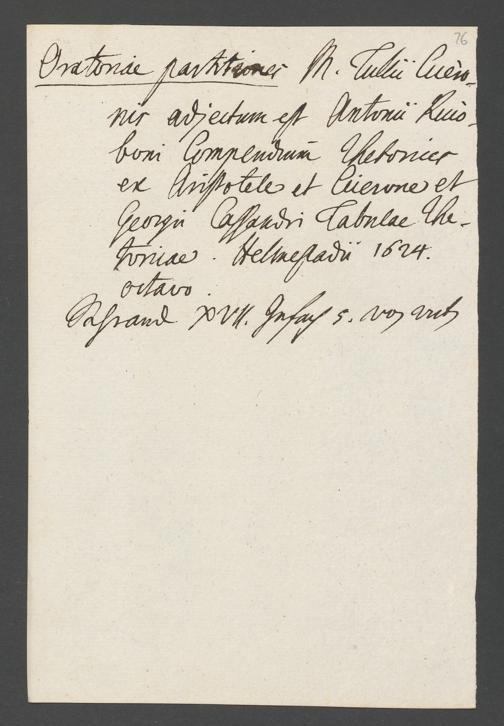 76
Oratoriae partitiones M. Tullii Cicero-
nis adjectum est Antonii Ricco-
boni Compendium Rhetorices
ex Aristotele et Cicerone et
Georgii Cassandri Tabulae Rhe-
toricae. Helmestadii 1624.
octavo.
XVII. 5.